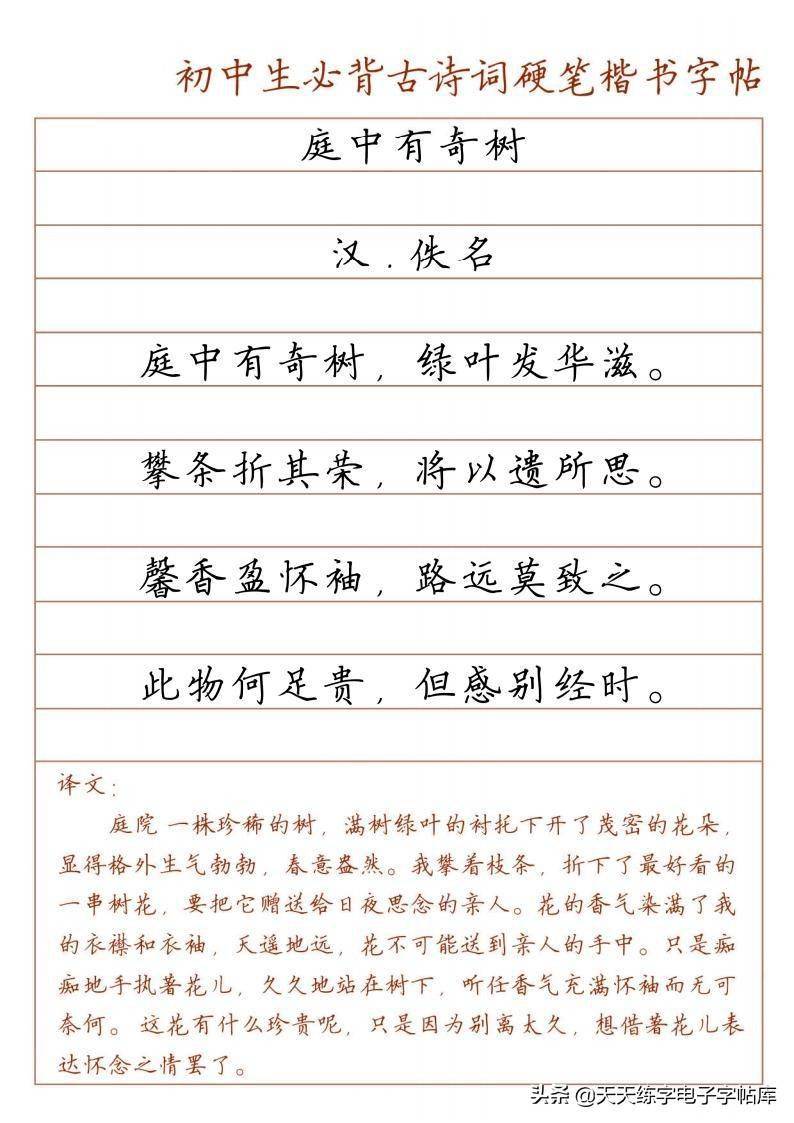 初中生必背古诗词硬笔楷书字帖
庭中有奇树
汉.佚名
庭中有奇树，绿叶发华滋。
攀条折其荣，将以遗所思。
馨香盈怀袖，路远莫致之。
此物何足贵，但感别经时。
译文：
庭院 一株珍稀的树，满树绿叶的衬托下开了茂密的花朵，
显得格外生气勃勃，春意盎然。我攀着枝条，折下了最好看的
一串树花，要把它赠送给日夜思念的亲人。花的香气染满了我
的衣襟和衣袖，天遥地远，花不可能送到亲人的手中。只是痴
痴地手执著花儿，久久地站在树下，听任香气充满怀袖而无可
奈何。 这花有什么珍贵呢，只是因为别离太久，想借著花儿表
达怀念之情罢了。
头条 @天天练字电子字帖库